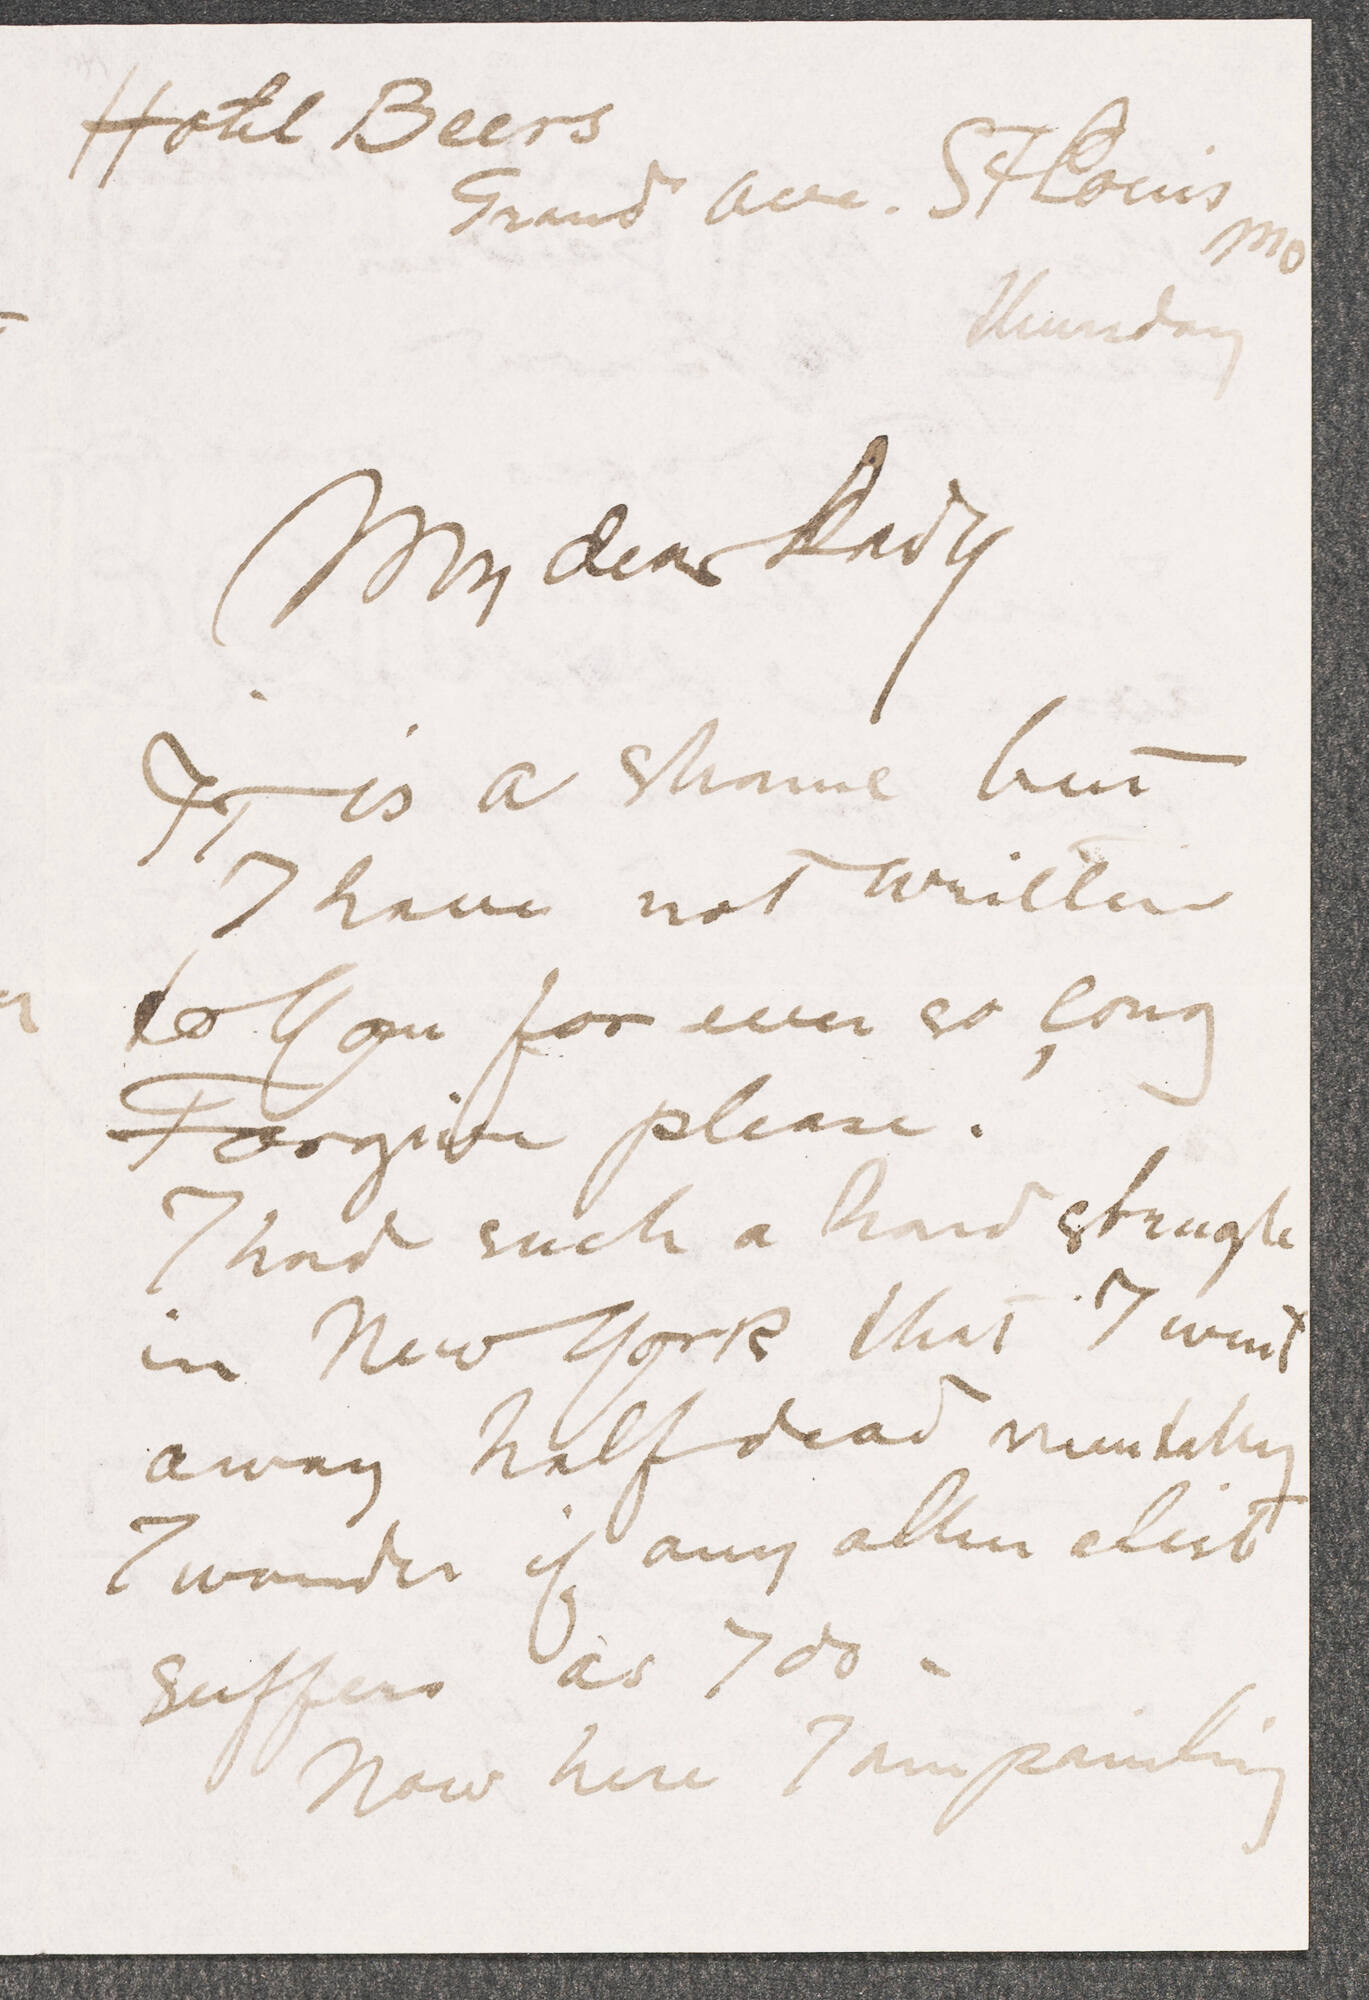 Hotel Beers
Grand Ave. St Louis
Mo
Thursday
My dear Lady
It is a shame but
I have not written
to You for ever so long,
Forgive please.
I had such a hard strugle
in New York that I went
away half dead mentally
I wonder if any other
suffers as I do -
Now here I am painting